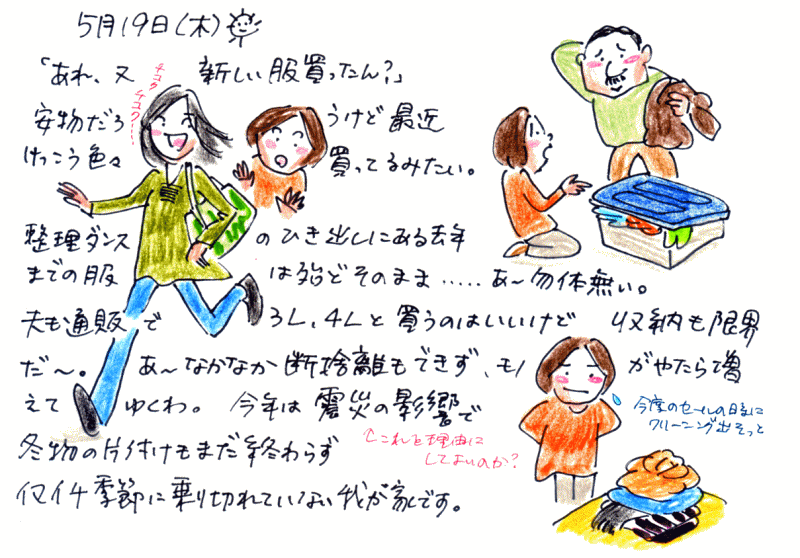 5月19日(木)
「あれ、又 新しい服買ったん?」
チョコ チョコ
安物だろうけど最近
けっこう色々買ってるみたい。
整理ダンスのひき出しにある去年
までの服は殆どそのまま.....あ〜勿体無い。
夫も通販で3L、4Lと買うのはいいけど 収納も限界
だ〜。 あ〜なかなか断捨離もできず、モノがやたら増
えてゆくわ。 今年は震災の影響で
↑これを理由に
してよいのか?
今度のセールの日までに
クリーニング出そっと
冬物の片付けもまだ終わらず
イマイチ季節に乗り切れていない我が家です。